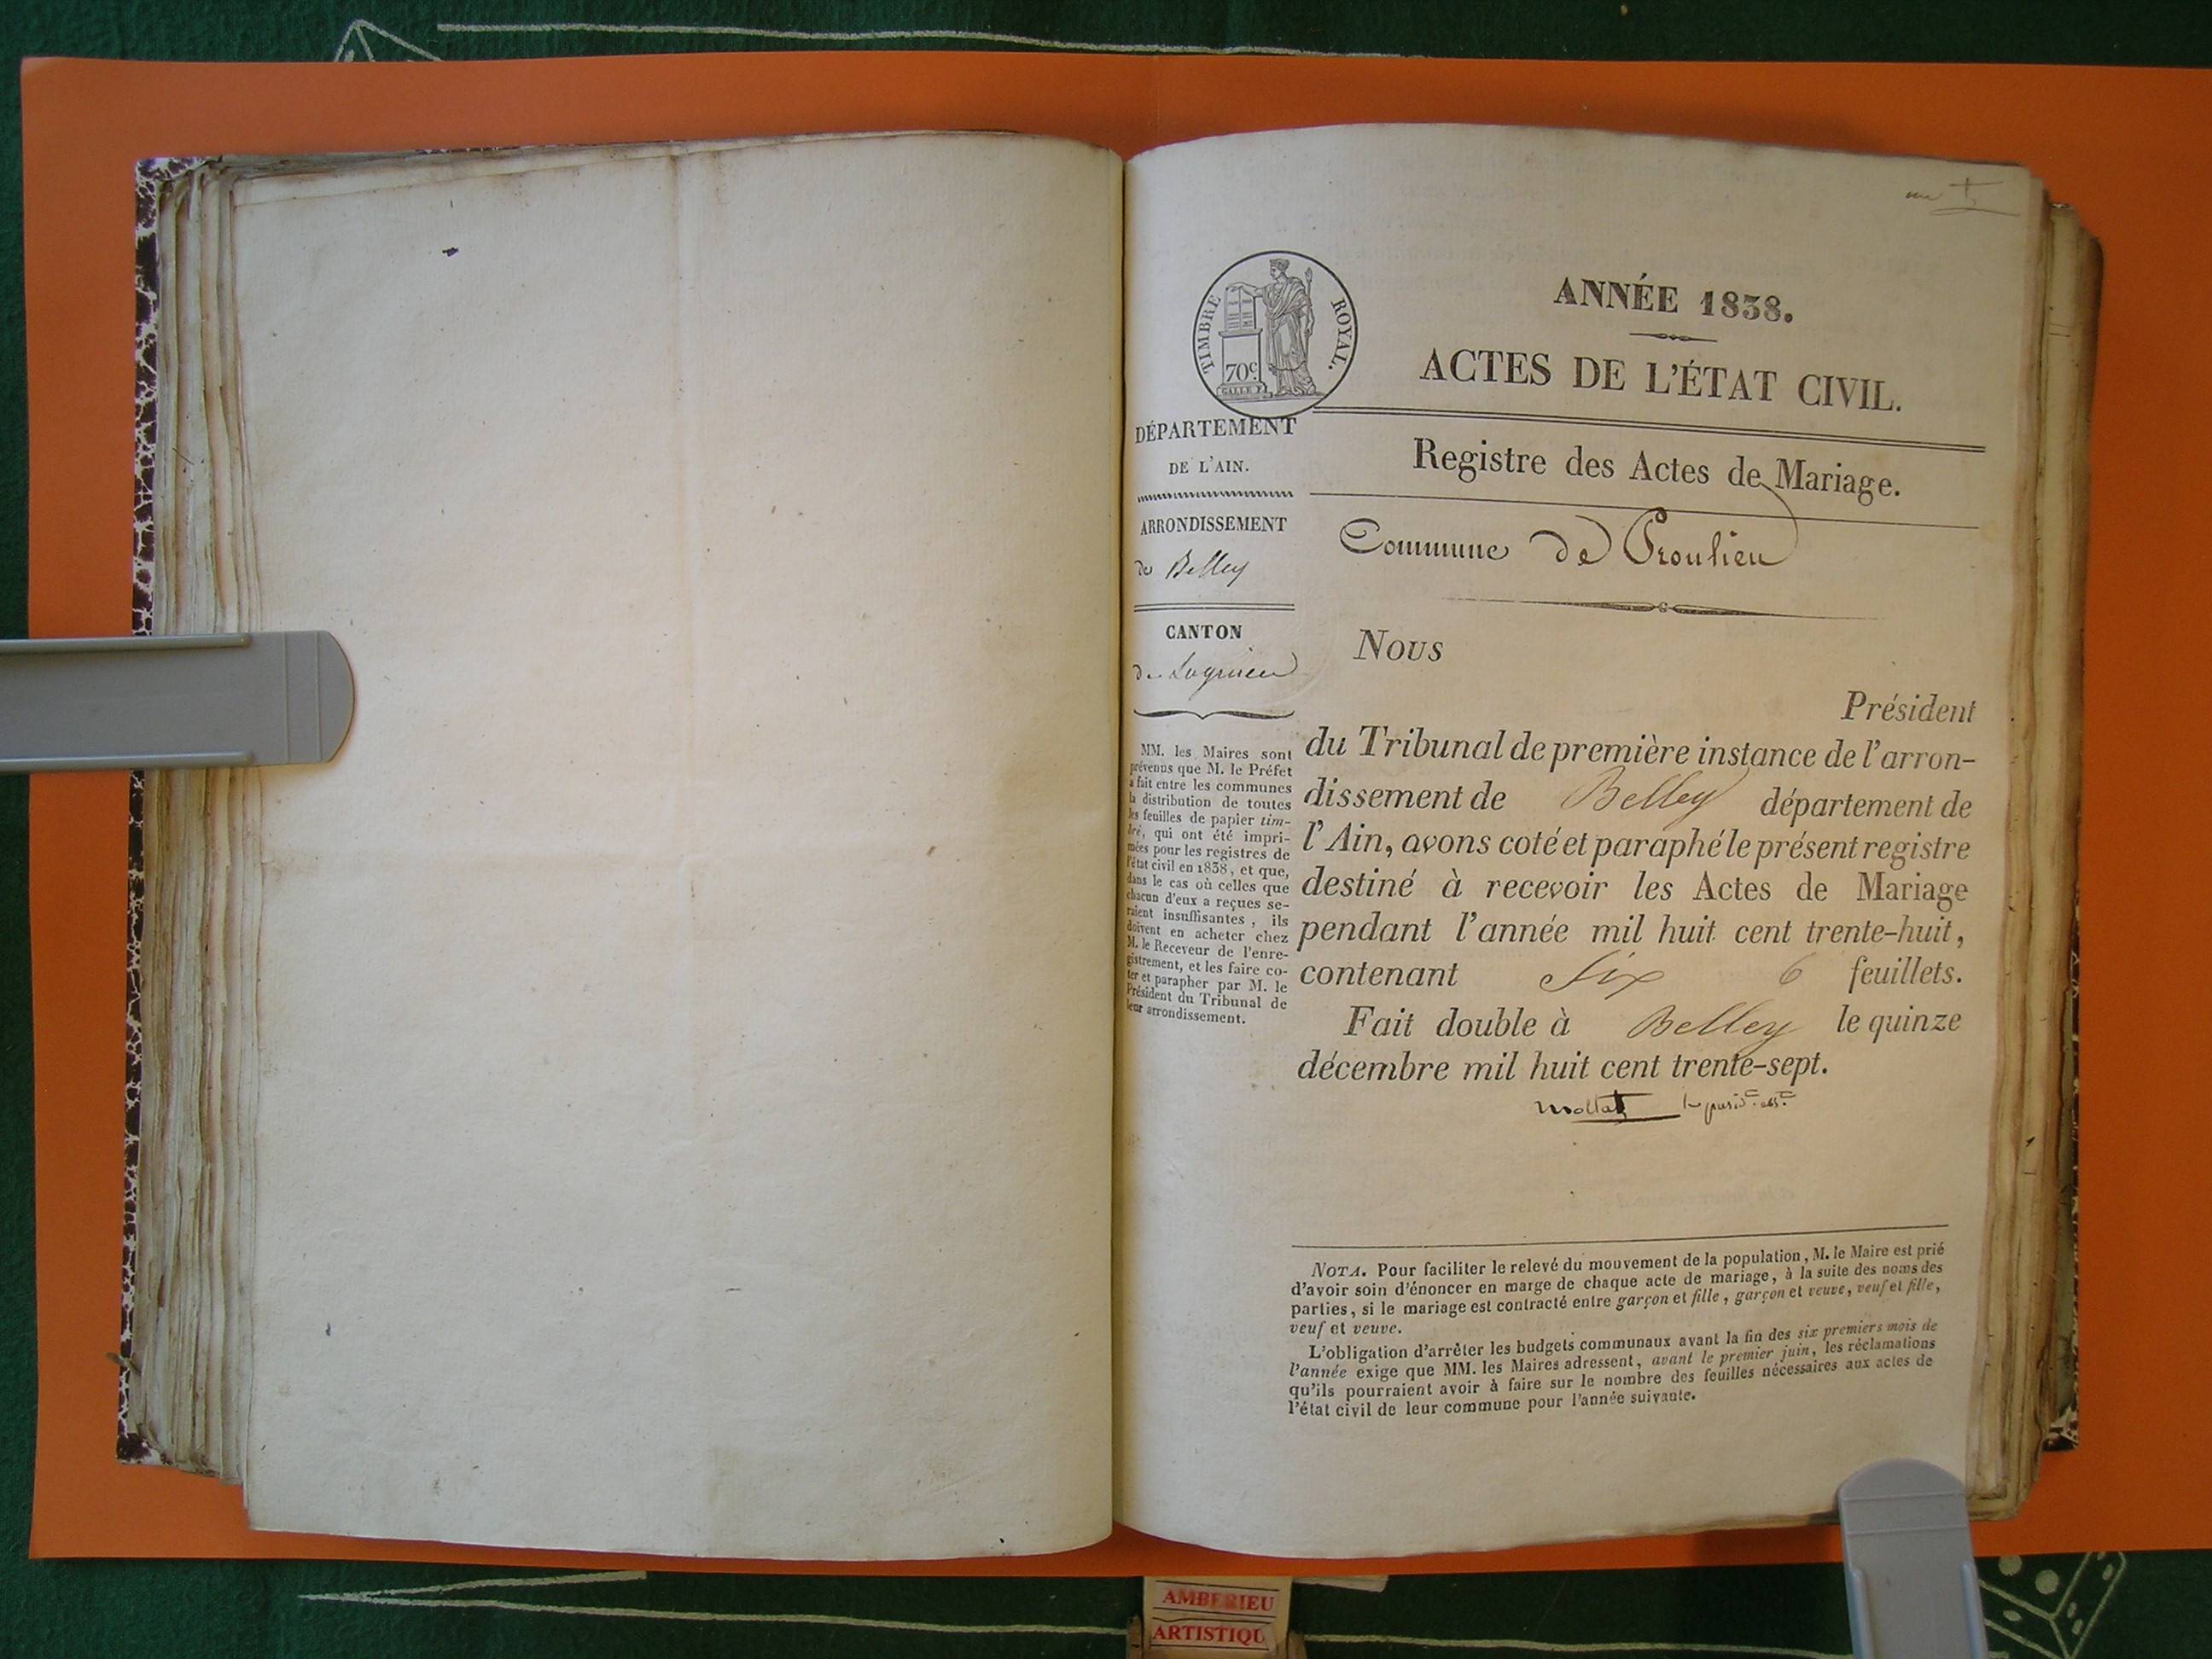 TIMBRE ROYAL.
70c.
GALLE F.
ANNÉE 1838.
ACTES DE L'ÉTAT CIVIL.
DÉPARTEMENT
DE L'AIN.
ARRONDISSEMENT
de Belley
CANTON
de Lagnieu
MM. les Maires sont
prévenus que M. le Préfet
a fait entre les communes
la distribution de toutes
les feuilles de papier tim-
bré, qui ont été impri-
mées pour les registres de
l'état civil en 1838, et que,
dans le cas où celles que
chacun d'eux a reçues se-
raient insuffisantes, ils
doivent en acheter chez
M. le Receveur de l'enre-
gistrement, et les faire co-
ter et parapher par M. le
Président du Tribunal de
leur arrondissement.
Registre des Actes de Mariage.
Commune de Proulieu
Nous
Président
du Tribunal de première instance de l'arron-
dissement de Belley département de
l'Ain, avons coté et paraphé le présent registre
destiné à recevoir les Actes de Mariage
pendant l'année mil huit cent trente-huit,
contenant Six 6 feuillets.
Fait double à Belley le quinze
décembre mil huit cent trente-sept.
NOTA. Pour faciliter le relevé du mouvement de la population, M. le Maire est prié
d'avoir soin d'énoncer en marge de chaque acte de mariage, à la suite des noms des
parties, si le mariage est contracté entre garçon et fille, garçon et veuve, veuf et fille,
veuf et veuve.
L'obligation d'arrêter les budgets communaux avant la fin des six premiers mois de
l'année exige que MM. les Maires adressent, avant le premier juin, les réclamations
qu'ils pourraient avoir à faire sur le nombre des feuilles nécessaires aux actes de
l'état civil de leur commune pour l'année suivante.
AMBERIEU
ARTISTIQU